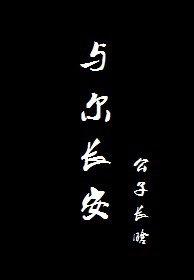 与尔长安
公子长晗